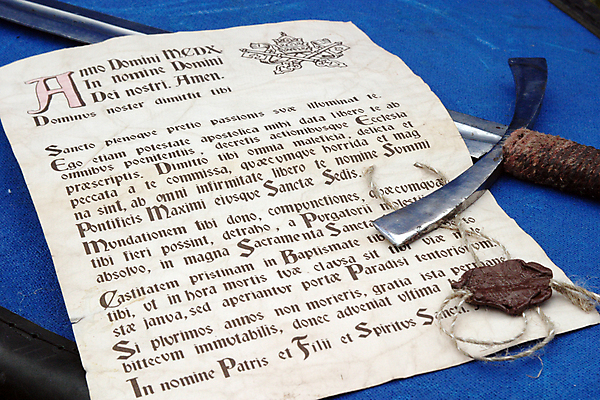 Anno Domini MCNX
In nomine Domini
Dei nostri. Amen.
Dominus noster dimittit tibi
Sancto plenoque pretio passionis suæ illuminat te.
Ego etiam potestate apostolica mihi data libero te ab
omnibus poenitentiis decretis actionibusque Ecclesia
præscriptis. Dimitto tibi omnia maleficia, delicta et
peccata a te commissa, quæcumque horrida et mag
na sint, ab omni infirmitate libero te nomine Summi
Pontificis Maximi eiusque Sanctæ Sedis.
Mundationem tibi dono, compunctiones, quæcumque
tibi fieri possint, detraho, a Purgatorii molestiis
absolvo, in magna Sacramenta Sanctæ
Castitatem pristinam in Baptismate tibi viæ
tibi, ut in hora mortis tuæ clausa sit via
stæ janua, sed aperiantur portæ Paradisi
Si plurimos annos non morieris, gratia ista
bittecum immutabilis, donec adveniat ultima
In nomine Patris et Filii et Spiritus Sancti.